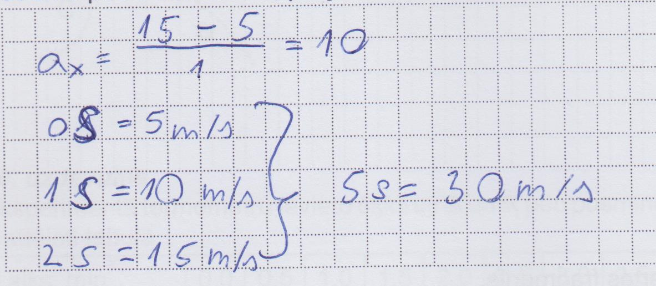 ax = (15 - 5)/1 = 10
0s = 5 m/s
1s = 10 m/s
2s = 15 m/s
5s = 30 m/s